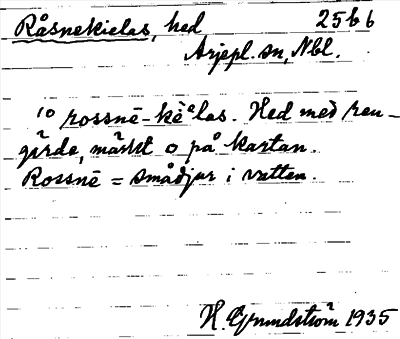 Råsnekielas, hed 25b6
Arjepl. sn, Nbl.
10 rossnē-kēͤlas. Hed med ren-
gärde, märkt o på kartan.
Rossnē = smådjur i vatten.
H. Grundström 1935